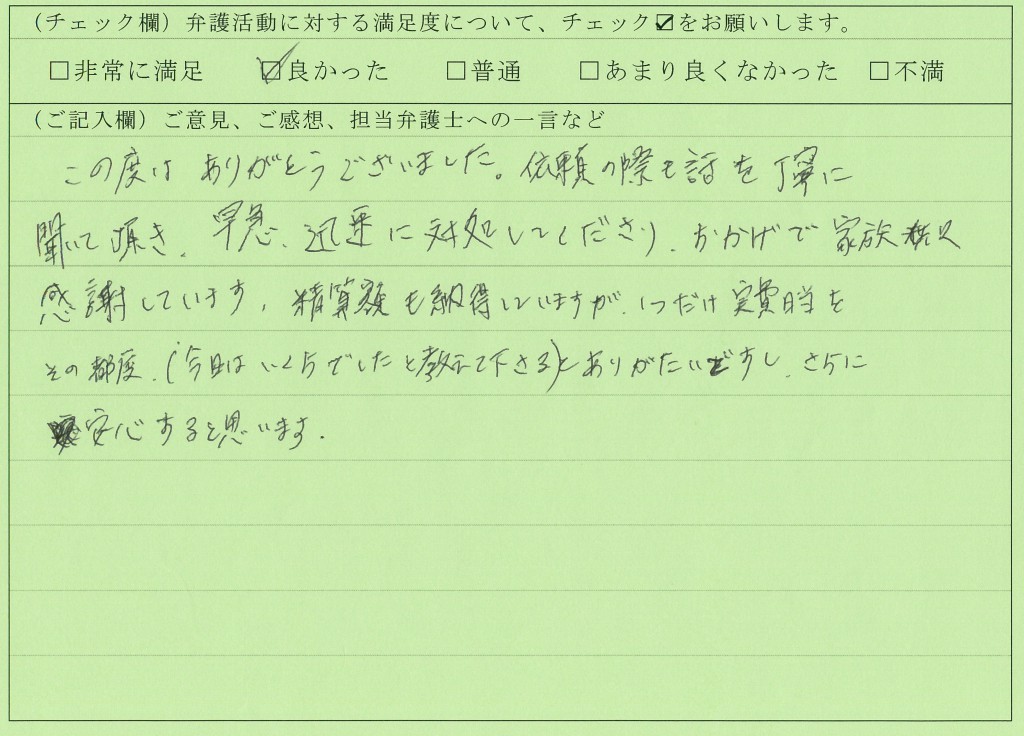 （チェック欄）弁護活動に対する満足度について、チェック☑をお願いします。
□非常に満足 ☑良かった □普通 □あまり良くなかった □不満
（ご記入欄）ご意見、ご感想、担当弁護士への一言など
この度は ありがとうございました。依頼の際も話を丁寧に
聞いて頂き、早急、迅速に対処してくださり、おかげで家族
感謝しています。精算額も納得していますが、1つだけ実費日当を
その都度、(今日はいくらでしたと教えて下さる)とありがたいですし、さらに
安心すると思います。